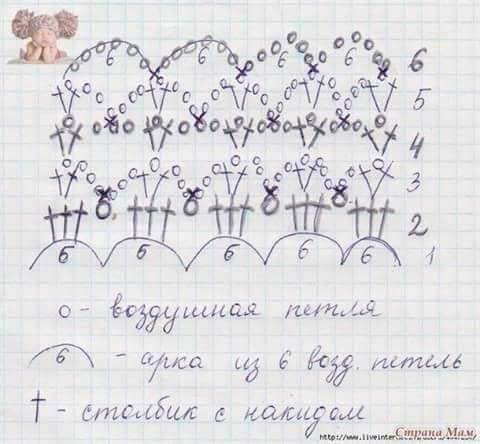 6 6 6 6 6
5
4
3
2
6 6 6 6 6 1
о - воздушная петля
6 - арка из 6 возд. петель
† - столбик с накидом
Страна Мам